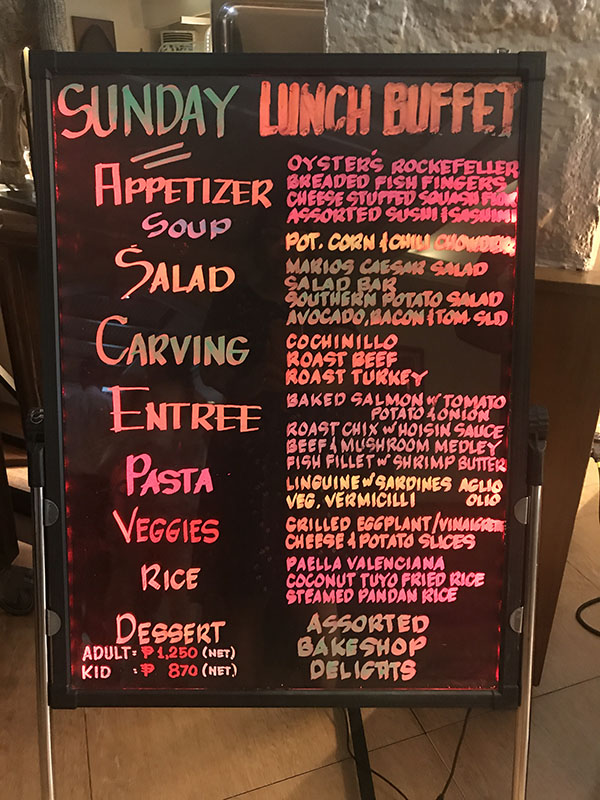 SUNDAY LUNCH BUFFET
APPETIZER
OYSTER'S ROCKEFELLER
BREADED FISH FINGERS
CHEESE STUFFED SQUASH
ASSORTED SUSHI & SASHIMI
SOUP
POT. CORN & CHILI CHOWDER
SALAD
MARIOS CAESAR SALAD
SALAD BAR
SOUTHERN POTATO SALAD
AVOCADO, BACON & TOM SLD
CARVING
COCHINILLO
ROAST BEEF
ROAST TURKEY
ENTREE
BAKED SALMON w/ TOMATO
POTATO & ONION
ROAST CHIX w/ HOISIN SAUCE
BEEF & MUSHROOM MEDLEY
FISH FILLET w/ SHRIMP BUTTER
PASTA
LINGUINE w/ SARDINES AGLIO
VEG. VERMICILLI OLIO
VEGGIES
GRILLED EGGPLANT/VINAIGRETTE
CHEESE & POTATO SLICES
RICE
PAELLA VALENCIANA
COCONUT TUYO FRIED RICE
STEAMED PANDAN RICE
DESSERT
ASSORTED
BAKESHOP
DELIGHTS
ADULT: ₱ 1,250 (NET)
KID : ₱ 870 (NET)